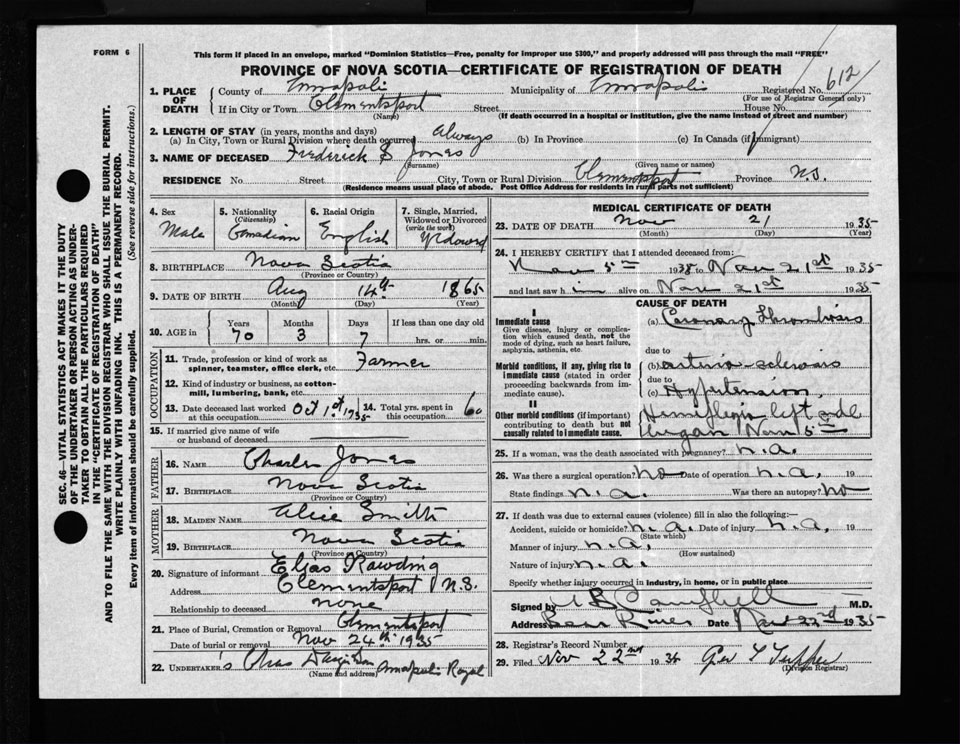 FORM 6
This form if placed in an envelope, marked "Dominion Statistics—Free, penalty for improper use $300," and properly addressed will pass through the mail "FREE"
PROVINCE OF NOVA SCOTIA—CERTIFICATE OF REGISTRATION OF DEATH
612
1. PLACE OF DEATH
County of Annapolis Municipality of Annapolis Registered No.
(For use of Registrar General only)
If in City or Town Clementsport Street House No.
(Name) (If death occurred in a hospital or institution, give the name instead of street and number)
2. LENGTH OF STAY (in years, months and days)
(a) In City, Town or Rural Division where death occurred Always (b) In Province (c) In Canada (if immigrant)
3. NAME OF DECEASED Frederick S Jones
(Surname) (Given name or names)
RESIDENCE No. Street City, Town or Rural Division Clementsport Province N.S.
(Residence means usual place of abode. Post Office Address for residents in rural parts not sufficient)
4. Sex Male
5. Nationality (Citizenship) Canadian
6. Racial Origin English
7. Single, Married, Widowed or Divorced (write the word) Widowed
8. BIRTHPLACE Nova Scotia
(Province or Country)
9. DATE OF BIRTH Aug 14th 1865
(Month) (Day) (Year)
10. AGE in Years Months Days If less than one day old
70 3 7 hrs. or min.
OCCUPATION
11. Trade, profession or kind of work as spinner, teamster, office clerk, etc. Farmer
12. Kind of industry or business, as cotton-mill, lumbering, bank, etc.
13. Date deceased last worked at this occupation Oct 1st 1935
14. Total yrs. spent in this occupation 60
15. If married give name of wife or husband of deceased
FATHER
16. NAME Charles Jones
17. BIRTHPLACE Nova Scotia
(Province or Country)
MOTHER
18. MAIDEN NAME Alice Smith
19. BIRTHPLACE Nova Scotia
(Province or Country)
20. Signature of informant Rawding
Address Clementsport N.S.
Relationship to deceased none
21. Place of Burial, Cremation or Removal Clementsport
Date of burial or removal Nov 24th 1935
22. UNDERTAKER's Chas Annapolis Royal
(Name and address)
MEDICAL CERTIFICATE OF DEATH
23. DATE OF DEATH Nov 21 1935
(Month) (Day) (Year)
24. I HEREBY CERTIFY that I attended deceased from:
Nov 5th 1935 to Nov 21st 1935
and last saw him alive on Nov 21st 1935
CAUSE OF DEATH
I
Immediate cause
Give disease, injury or complication which caused death, not the mode of dying, such as heart failure, asphyxia, asthenia, etc.
(a) Coronary Thrombosis
due to
Morbid conditions, if any, giving rise to immediate cause (stated in order proceeding backwards from immediate cause).
(b) arterio-sclerosis
due to
(c) Hypertension
II
Other morbid conditions (if important) contributing to death but not causally related to immediate cause.
Hemiplegia left side
began Nov 5th
25. If a woman, was the death associated with pregnancy? n.a.
26. Was there a surgical operation? no Date of operation n.a. 19
State findings n.a. Was there an autopsy? no
27. If death was due to external causes (violence) fill in also the following:
Accident, suicide or homicide? n.a. Date of injury n.a. 19
(State which)
Manner of injury n.a.
(How sustained)
Nature of injury n.a.
Specify whether injury occurred in industry, in home, or in public place
Signed by Campbell M.D.
Address Bear River Date Nov 22nd 1935
28. Registrar's Record Number
29. Filed Nov 22nd 1935 Geo T Tupper
(Division Registrar)
SEC. 46—VITAL STATISTICS ACT MAKES IT THE DUTY
OF THE UNDERTAKER OR PERSON ACTING AS UNDER-
TAKER TO OBTAIN ALL THE PARTICULARS REQUIRED
IN THE "CERTIFICATE OF REGISTRATION OF DEATH"
AND TO FILE THE SAME WITH THE DIVISION REGISTRAR WHO SHALL ISSUE THE BURIAL PERMIT.
WRITE PLAINLY WITH UNFADING INK. THIS IS A PERMANENT RECORD.
Every item of information should be carefully supplied. (See reverse side for instructions.)